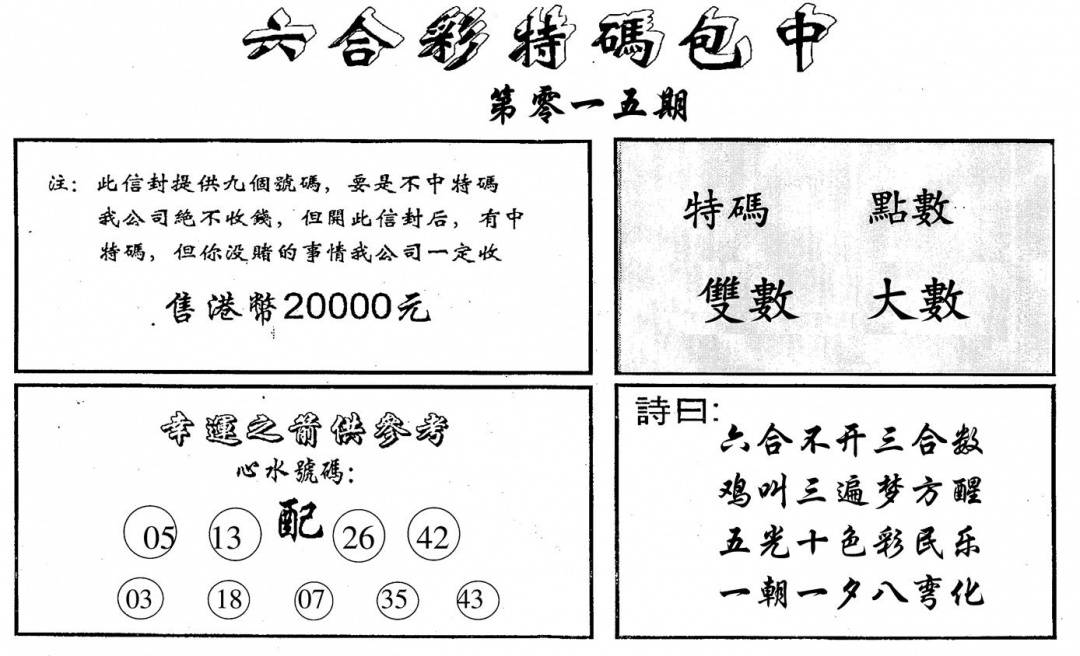 六合彩特碼包中
第零一五期
注：此信封提供九個號碼，要是不中特碼
我公司絕不收錢，但開此信封后，有中
特碼，但你没賭的事情我公司一定收
售港幣20000元
特碼 點數
雙數 大數
幸運之箭供參考
心水號碼：
05 13 配 26 42
03 18 07 35 43
詩曰：
六合不开三合数
鸡叫三遍梦方醒
五光十色彩民乐
一朝一夕八弯化